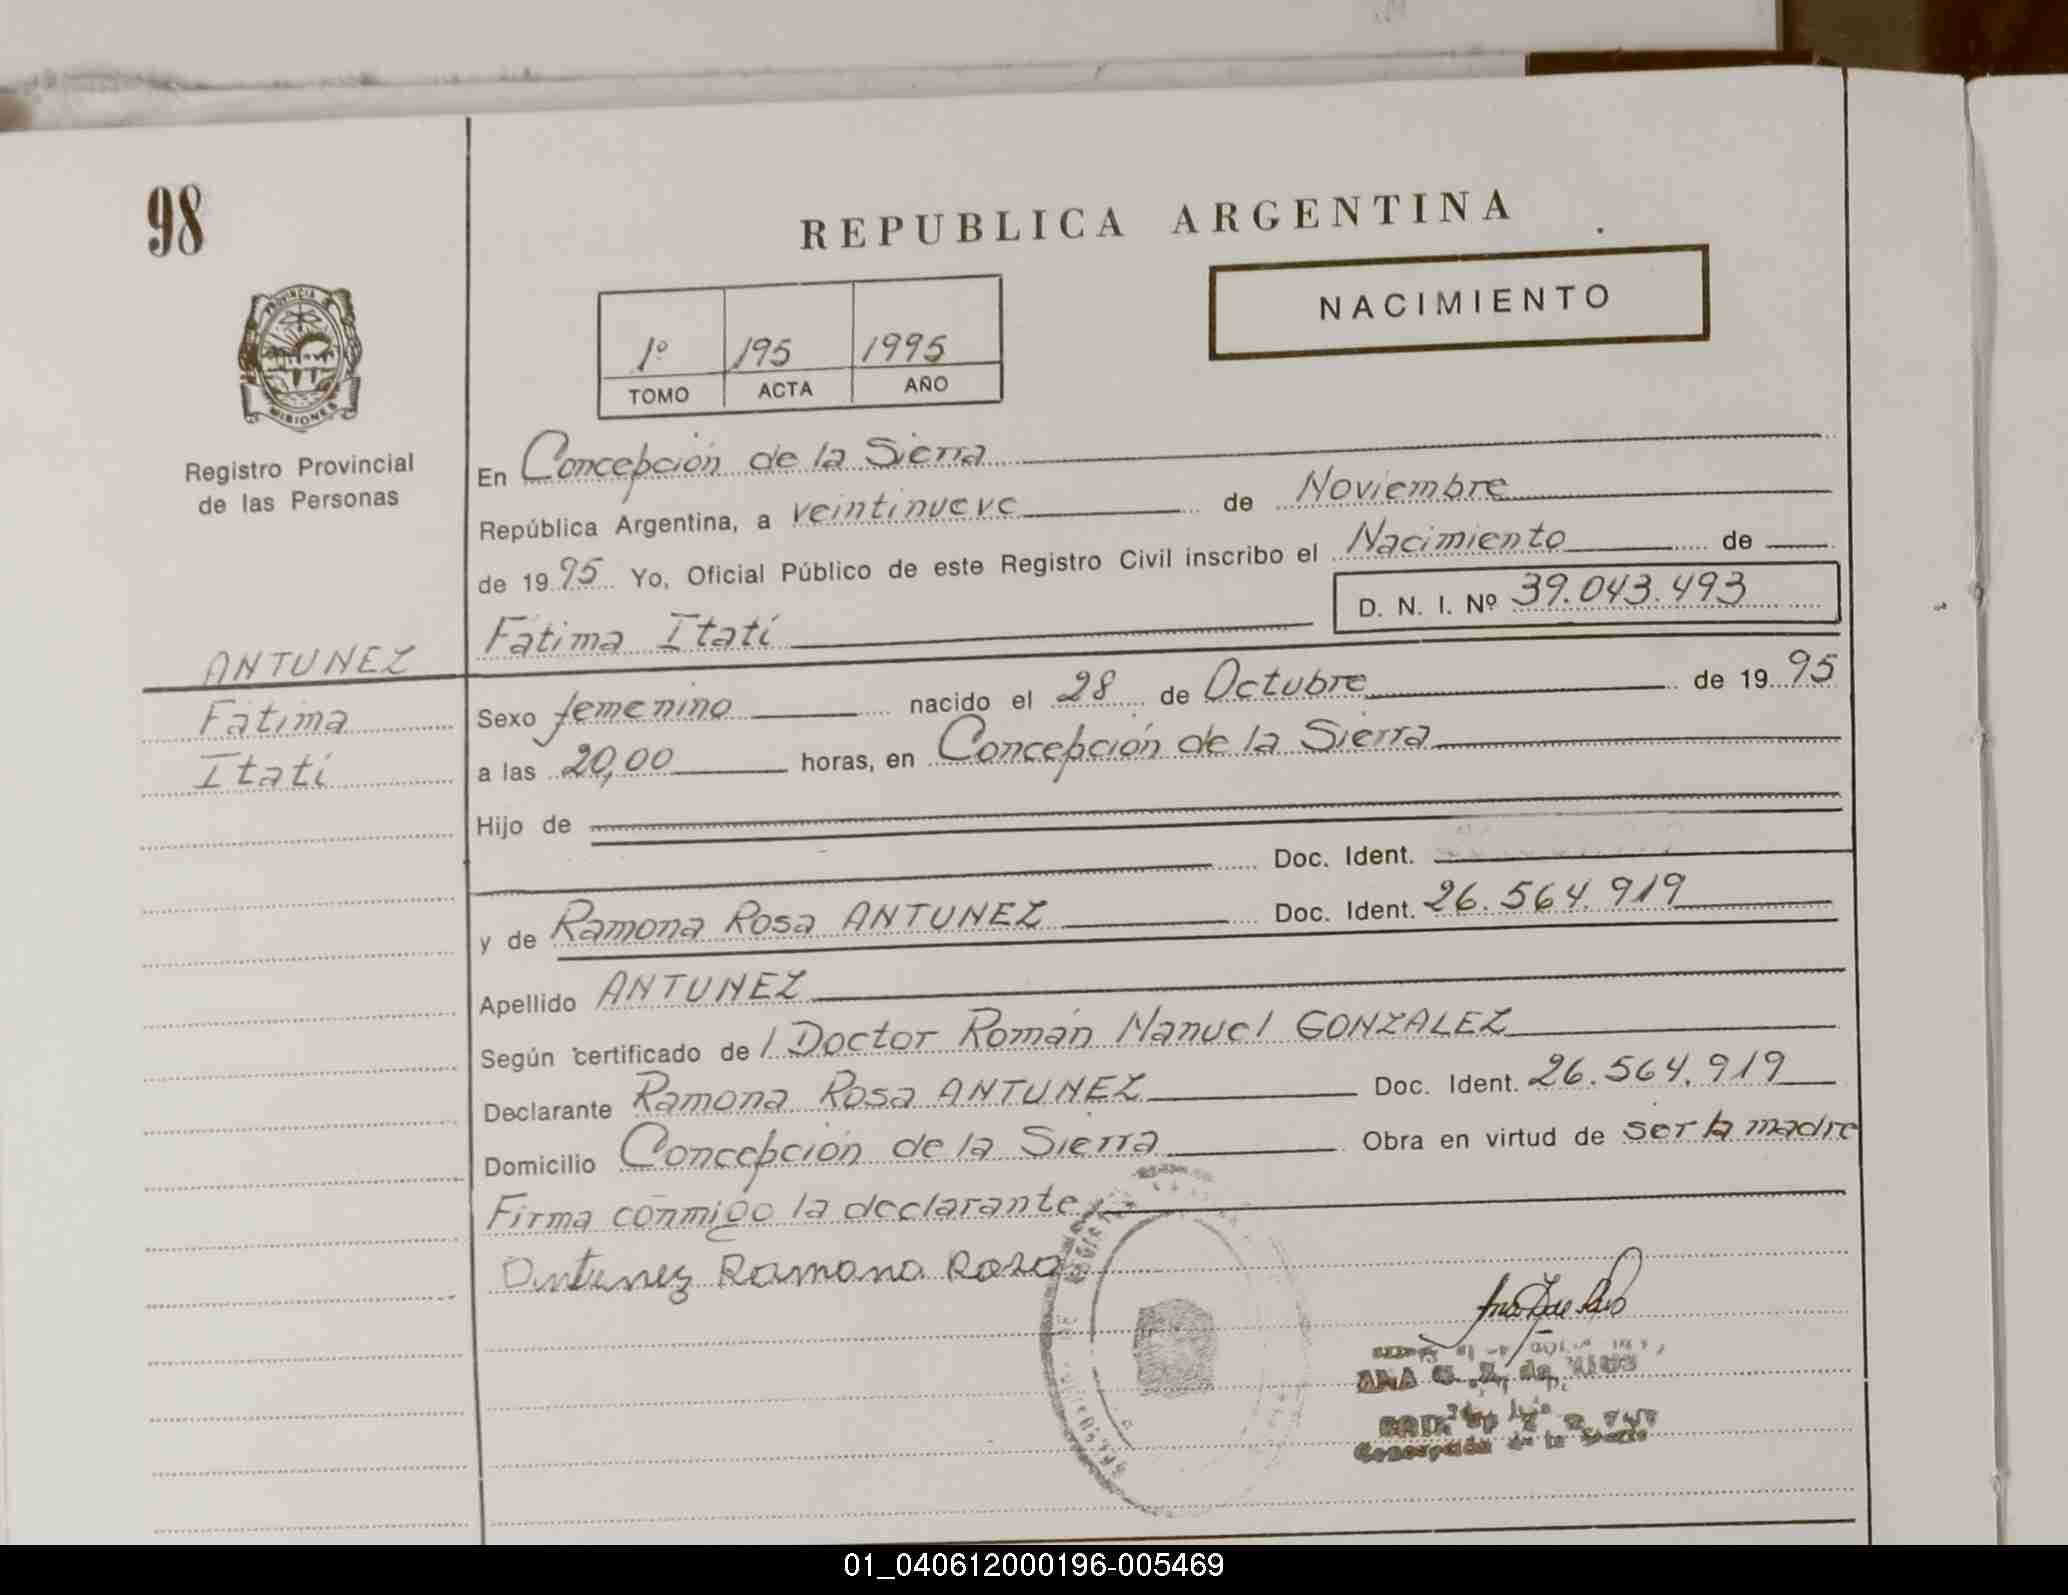 98
REPUBLICA ARGENTINA
NACIMIENTO
1º 195 1995
TOMO ACTA AÑO
PROVINCIA DE
MISIONES
Registro Provincial
de las Personas
En Concepción de la Sierra
República Argentina, a veintinueve de Noviembre
de 19 95 Yo, Oficial Público de este Registro Civil inscribo el Nacimiento de
D. N. I. Nº 39.043.493
Fátima Itatí
ANTUNEZ
Fátima
Itatí
Sexo femenino nacido el 28 de Octubre de 19 95
a las 20,00 horas, en Concepción de la Sierra
Hijo de
Doc. Ident.
y de Ramona Rosa ANTUNEZ Doc. Ident. 26.564.919
Apellido ANTUNEZ
Según certificado de l Doctor Román Manuel GONZALEZ
Declarante Ramona Rosa ANTUNEZ Doc. Ident. 26.564.919
Domicilio Concepción de la Sierra Obra en virtud de ser la madre
Firma conmigo la declarante
Antunez Ramona Rosa
ANA de
Concepción de la Sierra
01_040612000196-005469